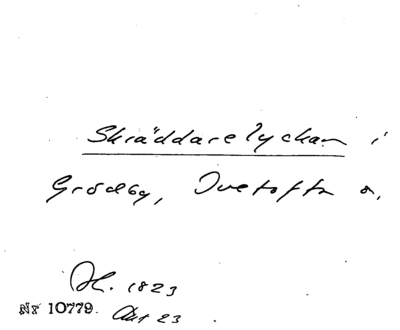 Skräddarelyckan i
Grödby, Ivetofta s.
Bl. 1823
Nr 10779. Akt 23